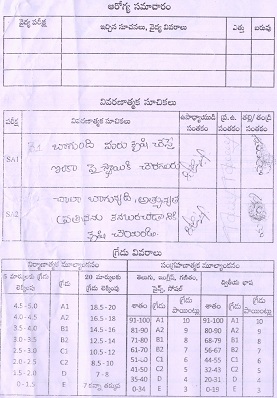 ఆరోగ్య సమాచారం
వైద్య పరీక్ష ఇచ్చిన సూచనలు, వైద్య వివరాలు ఎత్తు బరువు
వివరణాత్మక సూచికలు
పరీక్ష వివరణాత్మక సూచికలు ఉపాధ్యాయుడి సంతకం ప్ర.ఉ. సంతకం తల్లి/తండ్రి సంతకం
SA1 బాగుంది మరు కృషి చేస్తే
ఇంకా పై స్థాయికి చేరగలరు
చాలా బాగున్నది, అత్యున్నత
SA2 ప్రతిభను కనబరచడానికి
కృషి చేయాలి.
గ్రేడు వివరాలు
నిర్మాణాత్మక మూల్యాంకనం సంగ్రహణాత్మక మూల్యాంకనం
5 మార్కులకు లెక్కింపు గ్రేడు 20 మార్కులకు లెక్కింపు తెలుగు, ఇంగ్లీష్, గణితం, సైన్స్, సోషల్ ద్వితీయ భాష
శాతం గ్రేడు గ్రేడు పాయింట్లు శాతం గ్రేడు గ్రేడు పాయింట్లు
4.5-5.0 A1 18.5-20 91-100 A1 10 90-100 A1 10
4.0-4.5 A2 16.5-18 81-90 A2 9 80-89 A2 9
3.5-4.0 B1 14.5-16 71-80 B1 8 68-79 B1 8
3.0-3.5 B2 12.5-14 61-70 B2 7 56-67 B2 7
2.5-3.0 C1 10.5-12 51-60 C1 6 44-55 C1 6
2.0-2.5 C2 8.5-10 41-50 C2 5 32-43 C2 5
1.5-2.0 D 7-8 35-40 D 4 20-31 D 4
0-1.5 E 7 కన్నా తక్కువ 0-34 E 3 0-19 E 3